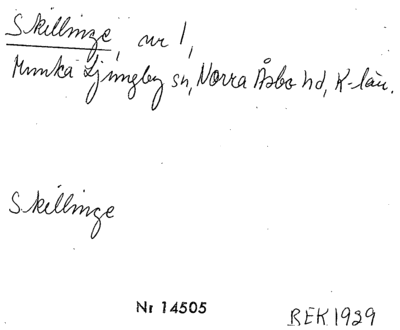 Skillinge, nr 1,
Munka Ljungby sn, Norra Åsbo hd, K-län.
Skillinge
Nr 14505
REK 1929